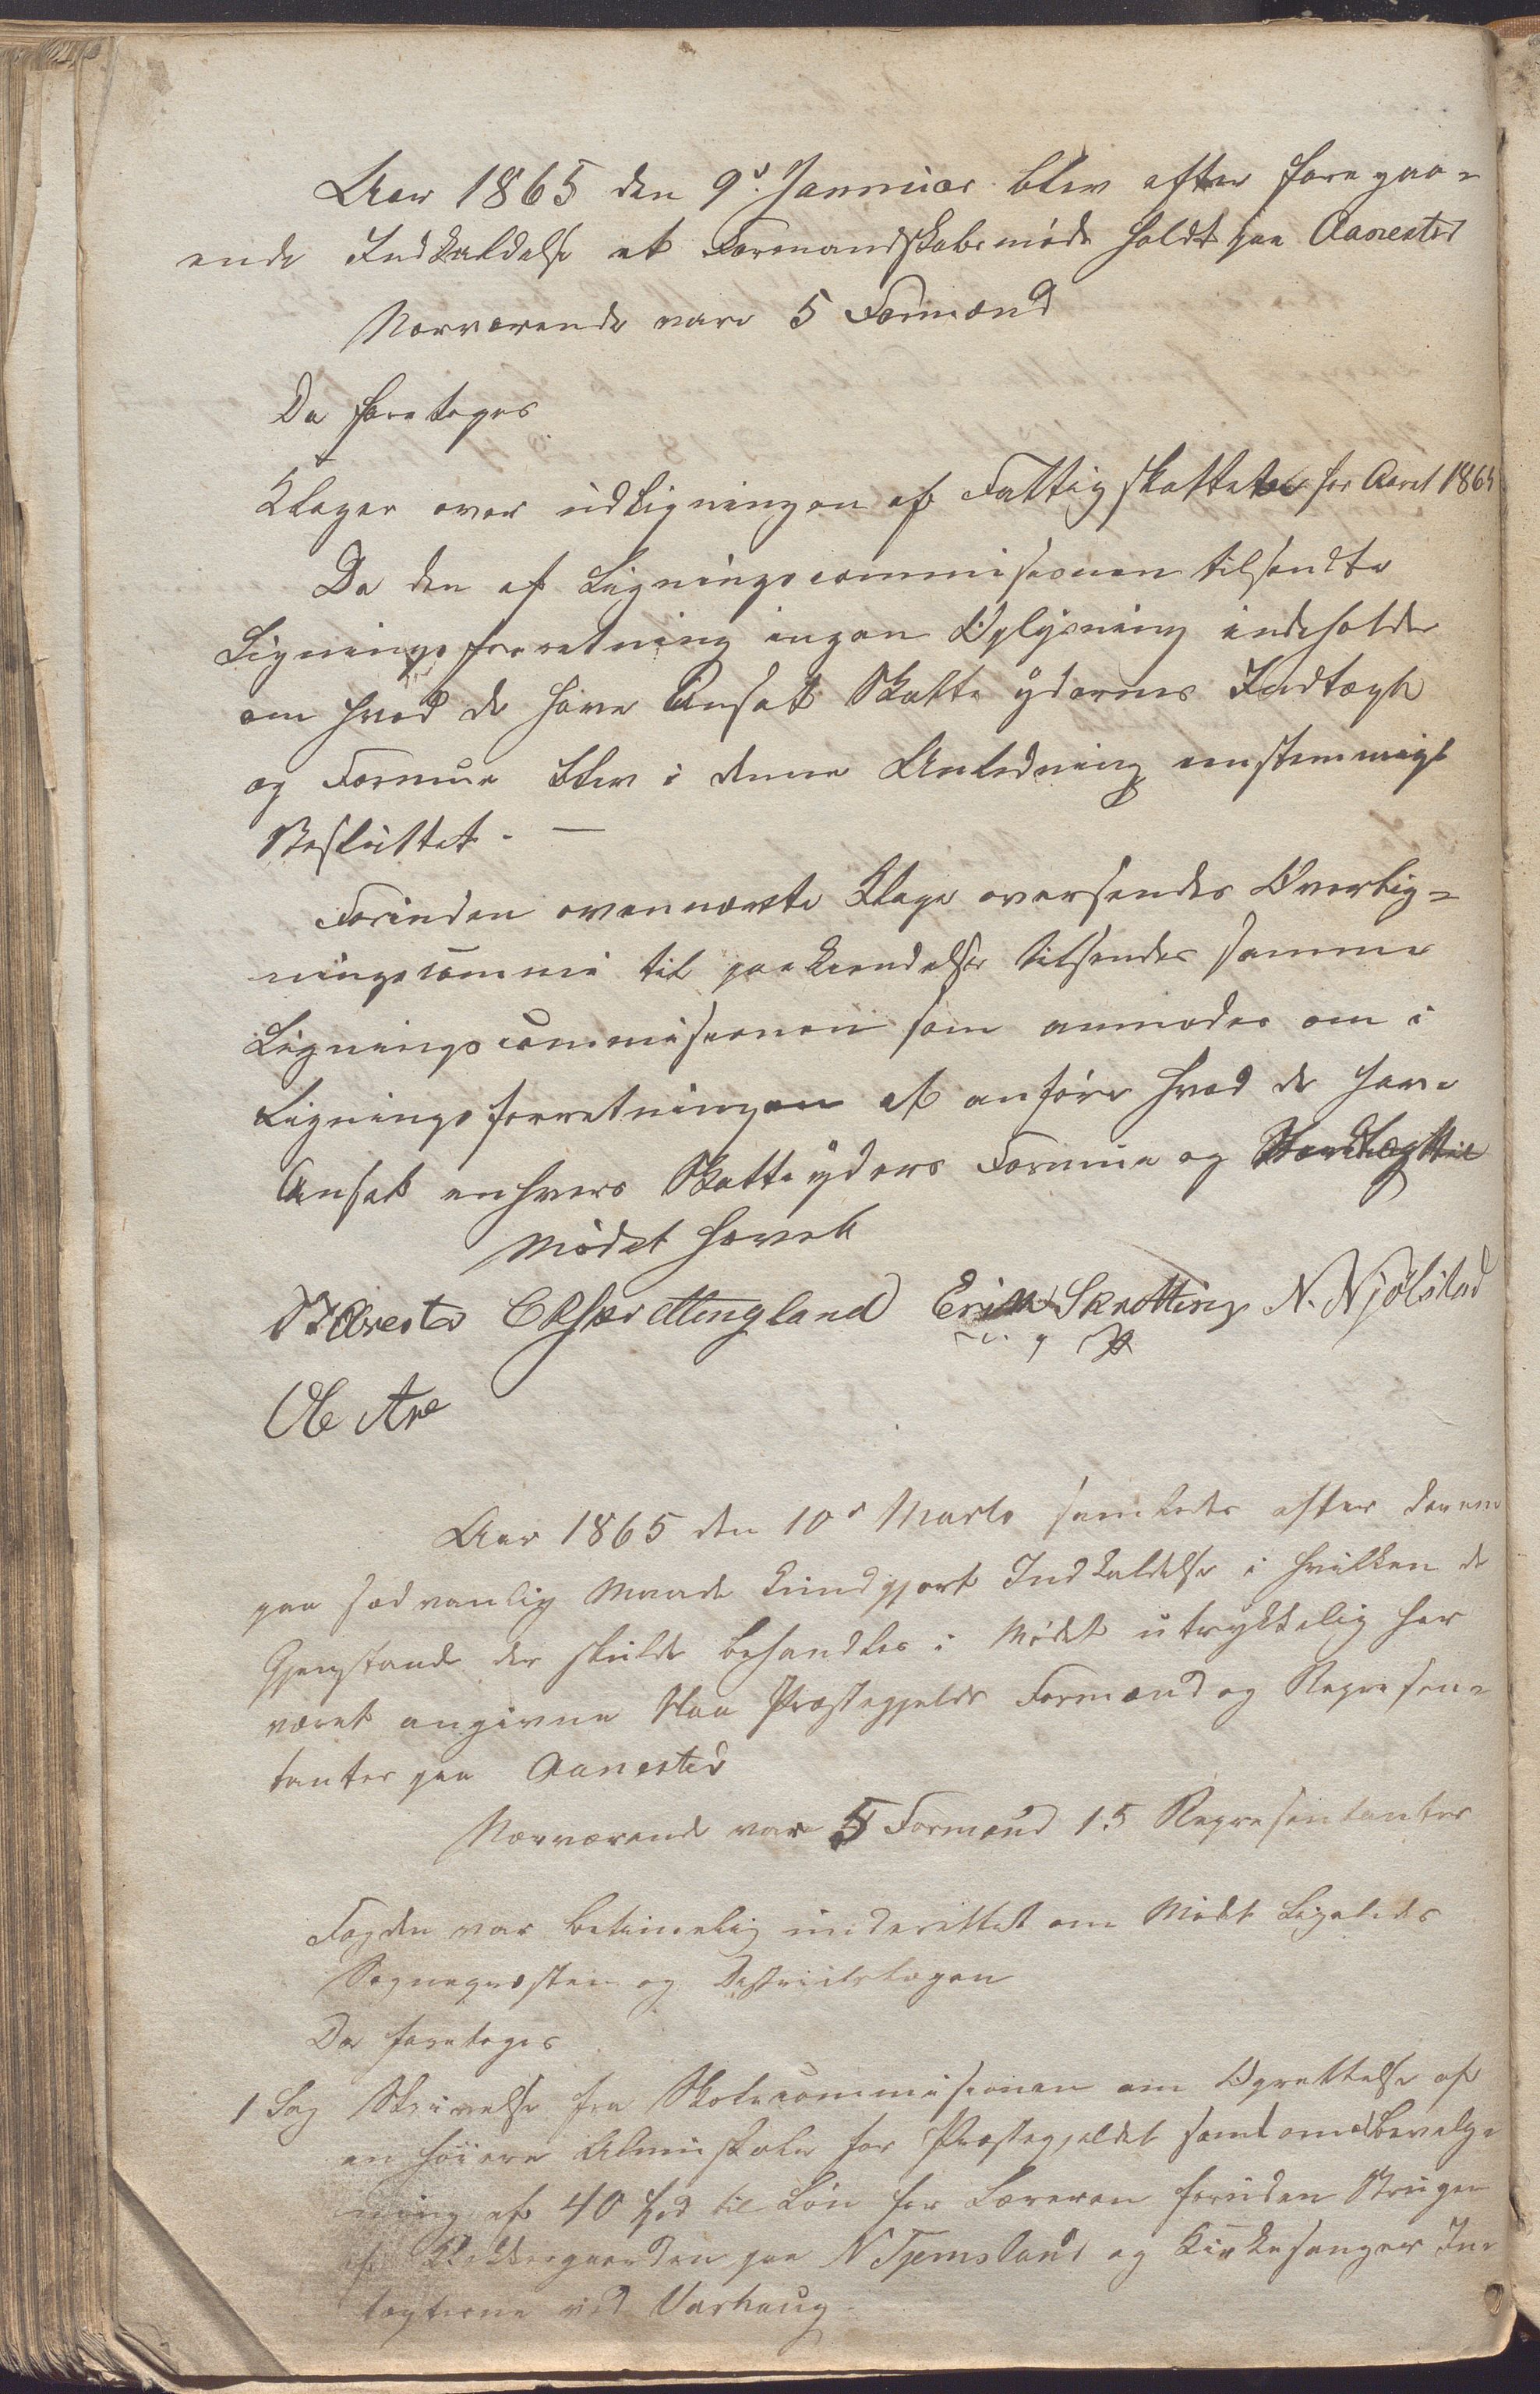 Aar 1865 den 9d. Januar blev efter foregaa-
ende Indkaldelse et Formandskabsmøde holdt paa Aanestad
Nærværende vare 5 Formænd
Da foretoges
Klager over udligningen af Fattigskatten for Aaret 1865
Da den af Ligningscommisionen tilsendte
Ligningsforretning ingen Oplysning indeholder
om hvad de have Ansat Skatte ydernes Indtægt
og Formue blev i denne Anledning eenstemmigt
Besluttet. —
Forinden ovennævnte Klage oversendes Overlig-
ningscommi til paakjendelse tilsendes samme
Ligningscommisionen som anmodes om i
Ligningsforretningen at anføre hvad de have
Ansat enhvers Skatteyders Formue og
Mødet hævet
Ole Are
Erik Skretting N. Njølstad
Aar 1865 den 10d Marts samledes efter derom
paa sædvanlig Maade kundgjort Indkaldelse i hvilken de
Gjenstande der skulde behandles i Mødet utrykkelig har
været angivne Haa Præstegjelds Formænd og Represen-
tanter paa Aanestad
Nærværende var 5 Formænd 15 Representanter
Fogden var betimelig underettet om Mødet Ligeledes
Sognepresten og Distriktslægen
Da foretoges
1 Sag Skrivelse fra Skolecommisionen om Oprettelse af
en høiere Almuskole for Præstegjeldet samt om Bevilge
ning af 40 Spd til Løn for Læreren foruden Brugen
af Klokkergaarden paa N Tjemsland og Kirkesanger In
tægterne ved Varhaug.